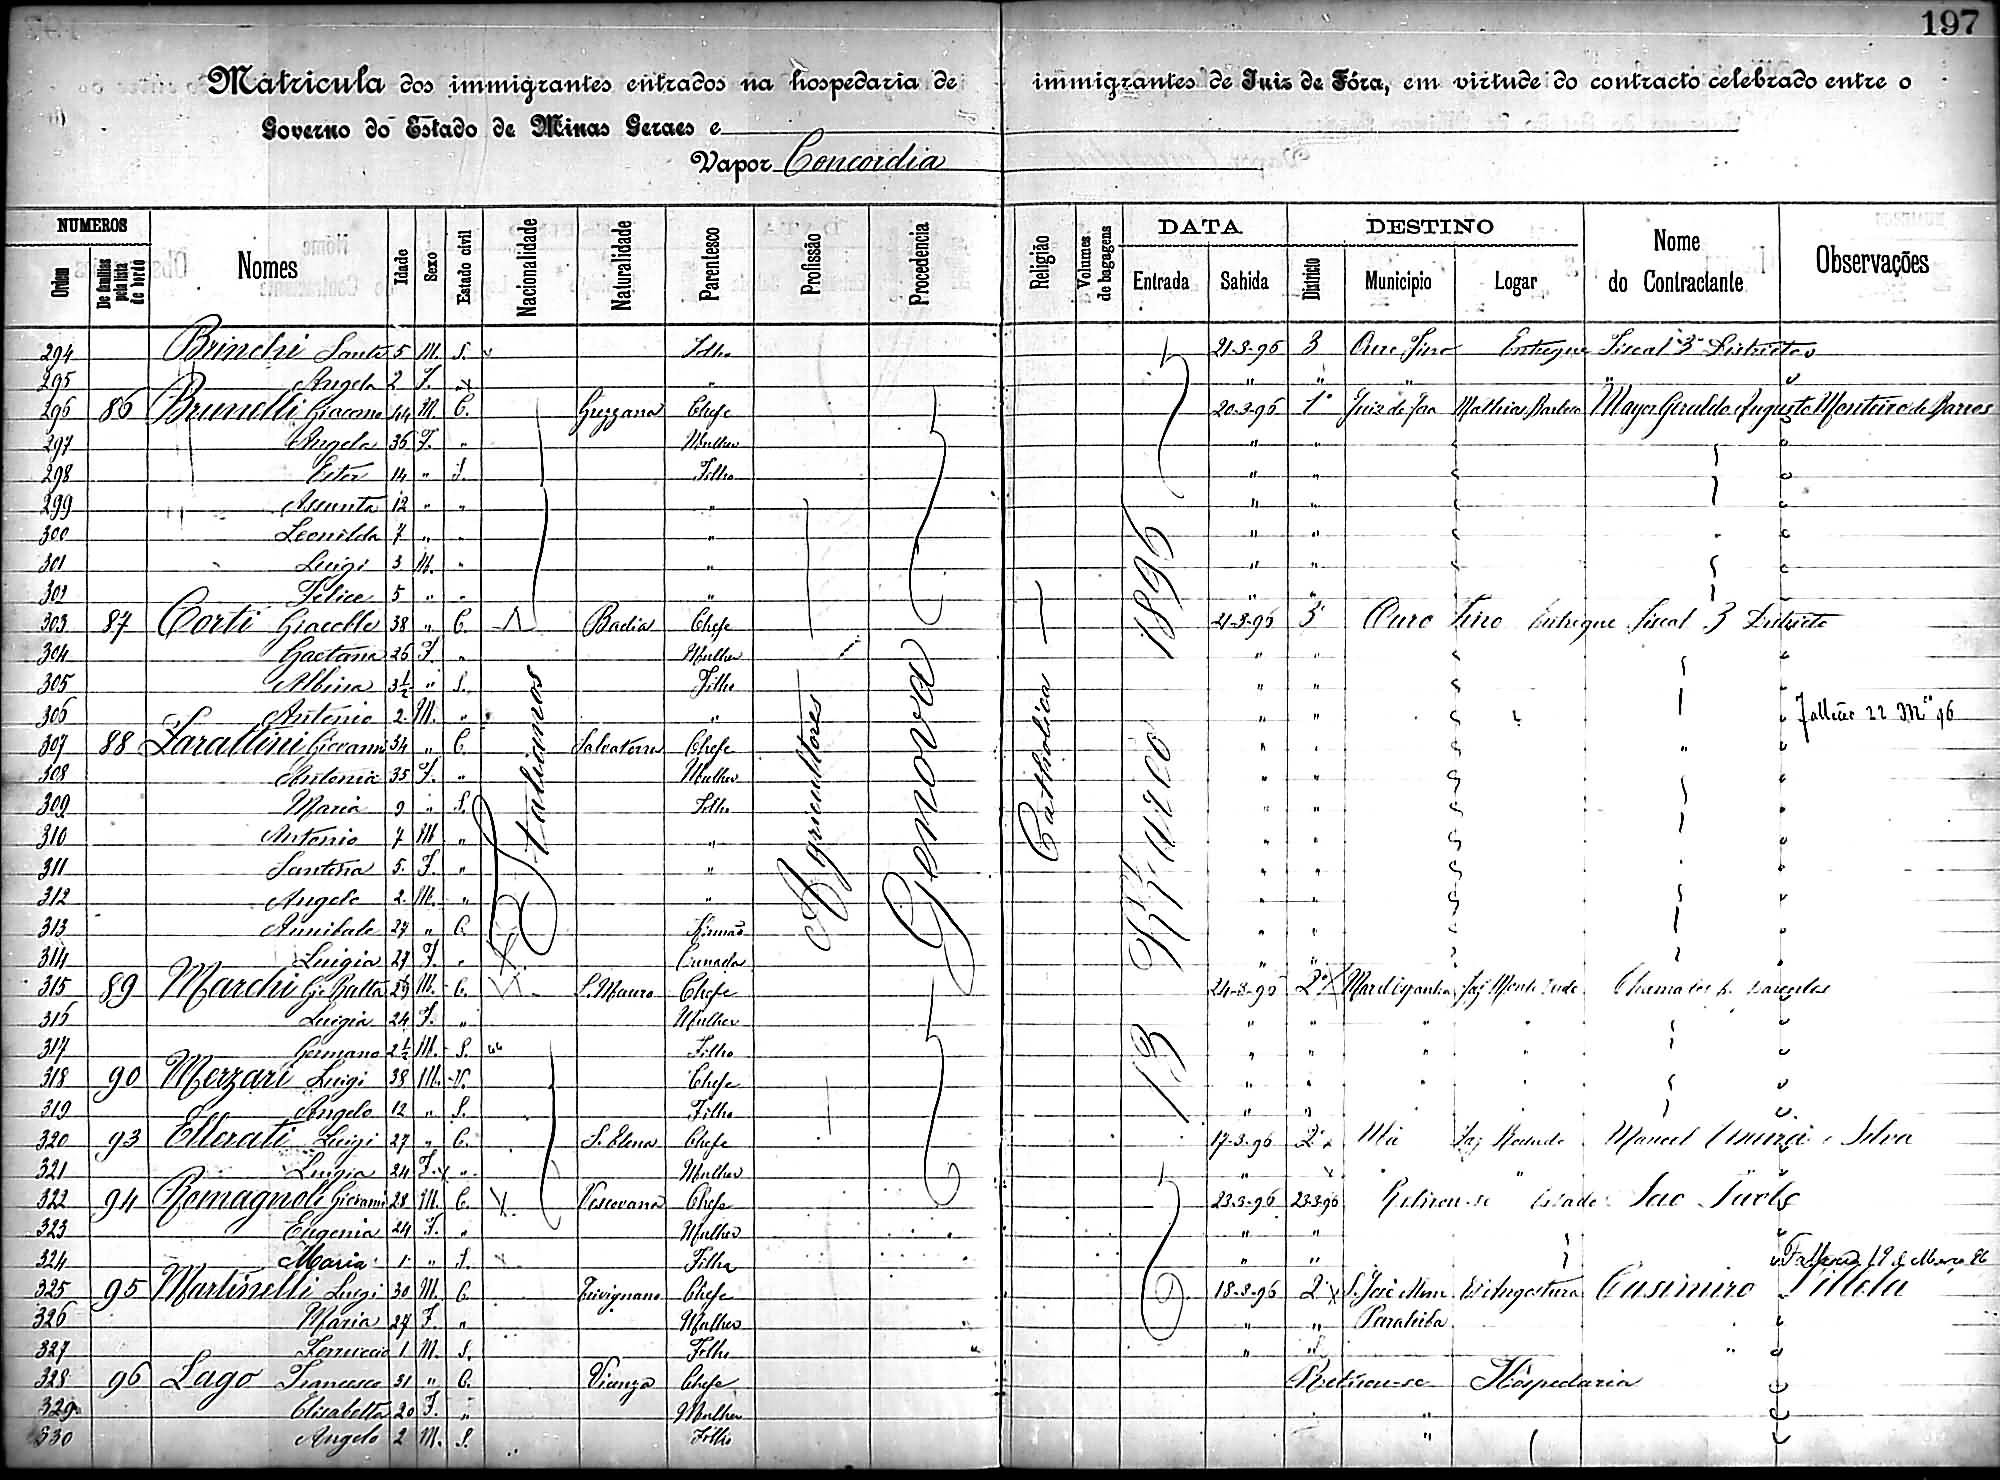 197
Matricula dos immigrantes entrados na hospedaria de immigrantes de Juiz de Fóra, em virtude do contracto celebrado entre o
Governo do Estado de Minas Geraes e
Vapor Concordia
NUMEROS DATA DESTINO
Ordem De familias pela lista de bordo Nomes Idade Sexo Estado civil Nacionalidade Naturalidade Parentesco Profissão Procedencia Religião Volumes de bagagens Entrada Sahida Districto Municipio Logar Nome do Contractante Observações
Italianos Agricultores Genova Catholica 13 Março 1896
294 Brinchi Sante 5 M. S. Filho 21-3-96 3 Ouro Fino Entregue Fiscal 3º Districto
295 Angela 2 F. " " " " "
296 86 Brunelli Giacomo 44 M. C. Chefe 20-3-96 1º Juiz de Fora Mathias Barbosa Major Geraldo Augusto Monteiro de Barros
297 Angela 36 F. " Mulher " "
298 Ester 14 " S. Filho " "
299 Assunta 12 " " " " "
300 Leonilda 7 " " " " "
301 Luigi 3 M. " " " "
302 Felice 5 " " " " "
303 87 Corti 38 " C. Badia Chefe 21-3-96 3º Ouro Fino Entregue fiscal 3 Districto
304 Gaetana 26 F. " Mulher " "
305 Albina 3½ " S. Filho " "
306 Antonio 2 M. " " " " 22 M 96
307 88 Giovanni 34 " C. Salvaterra Chefe " " "
308 Antonia 35 F. " Mulher " "
309 Maria 9 " S. Filho " "
310 Antonio 7 M " " " "
311 Santina 5 F. " " " "
312 Angelo 2 M. " " " "
313 Annibale 27 " C. Irmão " "
314 Luigia 27 F. " Cunhada " "
315 89 Marchi Gio Batta 29 M. C. S. Mauro Chefe 24-3-96 2º Mar d'Hespanha Faz
316 Luigia 24 F. " Mulher " " " "
317 Germano 2½ M. S. " Filho " " " "
318 90 Merzari Luigi 38 M. V. Chefe " " " "
319 Angelo 12 " S. Filho " "
320 93 Ellerati Luigi 27 " C. S. Elena Chefe 17-3-96 2º Faz Manoel Silva
321 Luigia 24 F. " Mulher " " "
322 94 Romagnoli Giovanni 28 M. C. Vescovana Chefe 23-3-96 23-3-96 Retirou-se Estado Sao Paolo
323 Eugenia 24 F. " Mulher " "
324 Maria 1 " S. Filha " " Falleceu 19 de Março 96
325 95 Martinelli Luigi 30 M. C. Trivignano Chefe 18-3-96 2º S. José Alem Angustura Casimiro Villela
326 Maria 27 F. " Mulher " " Parahiba
327 Ferruccio 1 M. S. Filho " " "
328 96 Lago Francesco 31 " C. Chefe Retirou-se Hospedaria
329 Elisabetta 20 F. " Mulher "
330 Angelo 2 M. S. Filho "